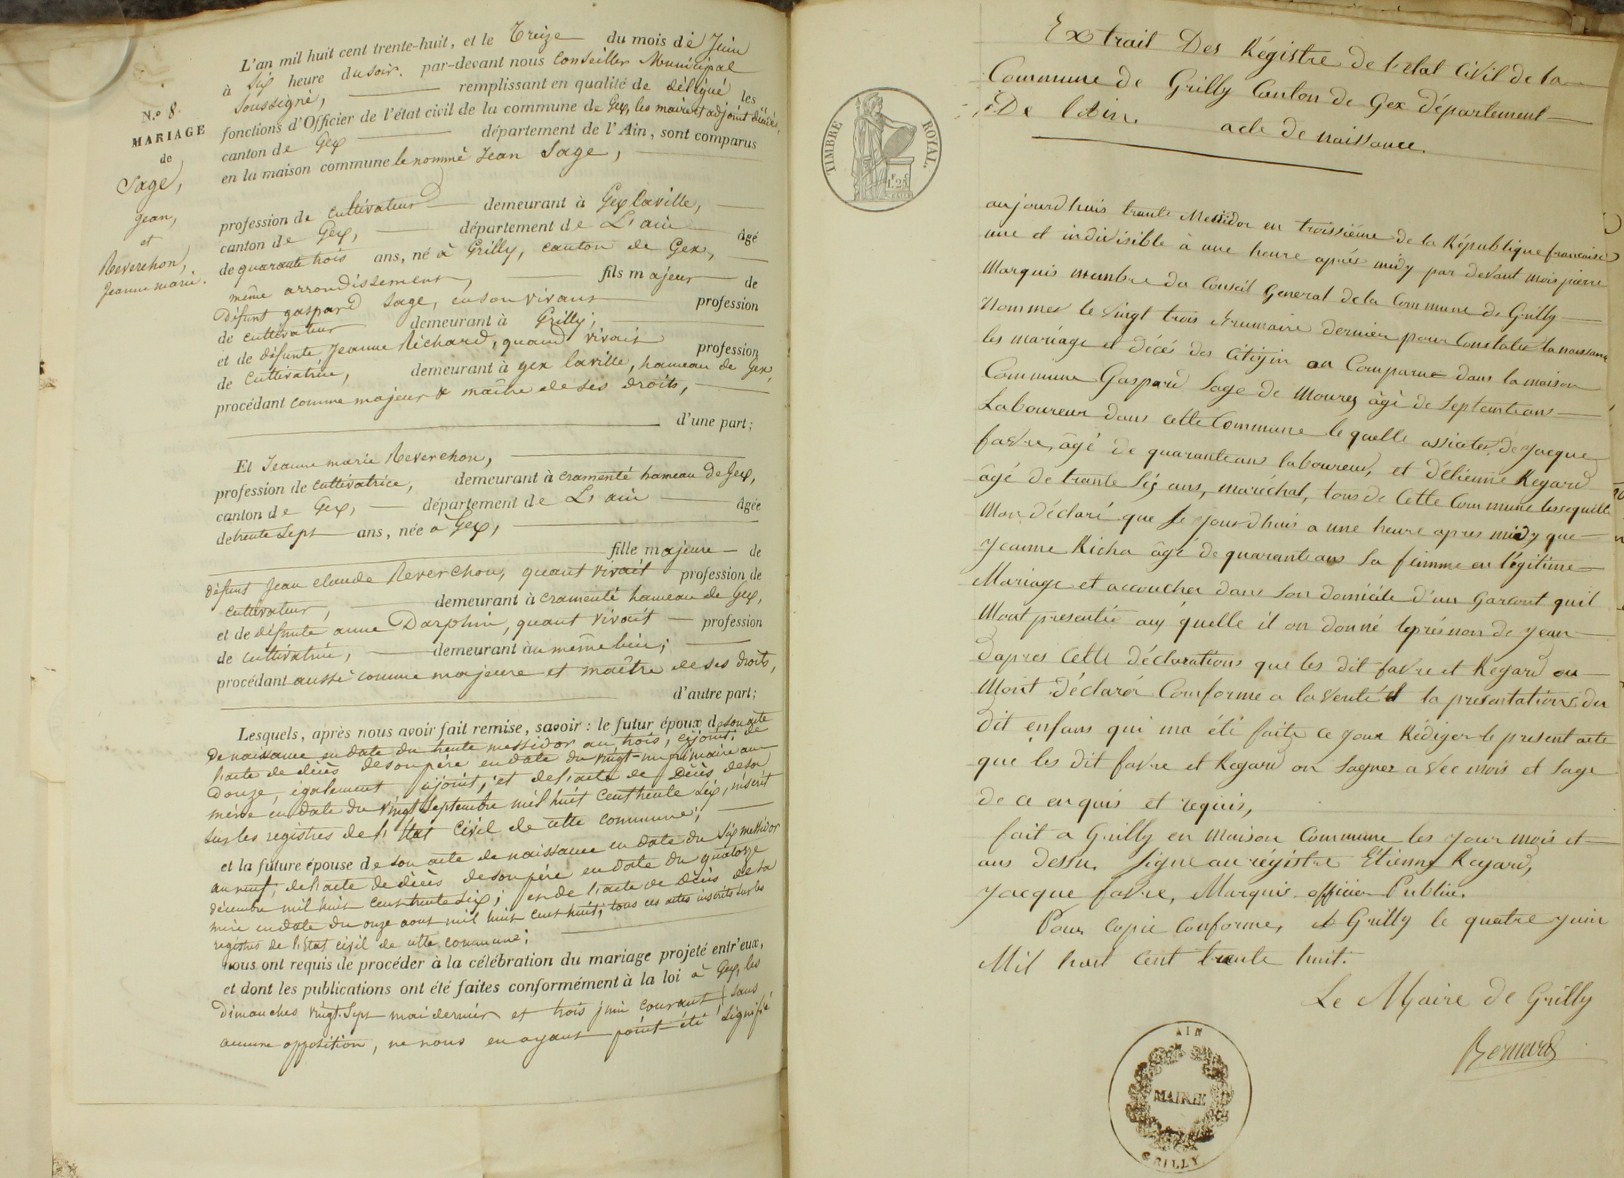 N.º 8.
MARIAGE
de
Sage,
Jean,
et
Reverchon,
Jeanne marie.
L'an mil huit cent trente-huit, et le Treize du mois de Juin
à Six heure du soir. par-devant nous Conseiller Municipal
Soussigné, remplissant en qualité de délégué les
fonctions d'Officier de l'état civil de la commune de Gex, les maire et adjoint
canton de Gex département de l'Ain, sont comparus
en la maison commune le nommé Jean Sage,
profession de cultivateur demeurant à Gex laville,
canton de Gex, département de L'ain âgé
de quarante trois ans, né à Grilly, canton de Gex,
même arrondissement, fils majeur de
défunt gaspard Sage, en son vivant profession
de cultivateur demeurant à Grilly,
et de défunte, Jeanne Richard, quand vivait profession
de Cultivatrice, demeurant à gex laville, hameau de Gex,
procédant comme majeur & maître de ses droits,
d'une part;
Et Jeanne marie Reverchon,
profession de cultivatrice, demeurant à cramenté hameau de Gex,
canton de Gex, département de L'ain âgée
de trente Sept ans, née à Gex,
fille majeure de
défunt Jean claude Reverchon, quant vivait profession de
cultivateur, demeurant à cramenté hameau de Gex,
et de défunte anne Darphin, quant vivoit profession
de cultivatrice, demeurant au même lieu;
procédant aussi comme majeure et maître de ses droits,
d'autre part;
Lesquels, après nous avoir fait remise, savoir: le futur époux de son acte
De naissance en date du trente messidor an trois, cijoint; de
l'acte de décès de son père en date du vingt-un primaire an
Douze, également cijoint; et de l'acte de Décès de sa
mère en date du vingt Septembre mil huit cent trente Six, inscrit
sur les registres de l'Etat civil de cette commune;
et la future épouse de son acte de naissance en date du Six messidor
an neuf, de l'acte de décès de son père en date du quatorze
décembre mil huit cent trente Six; et de l'acte de Décès de sa
mère en date du onze aout mil huit cent huit; tous ces actes inscrits sur les
registres de l'Etat civil de cette commune;
nous ont requis de procéder à la célébration du mariage projeté entr'eux,
et dont les publications ont été faites conformément à la loi à Gex, les
Dimanches vingt Sept mai dernier et trois juin courant; sans
aucune opposition, ne nous en ayant point été Signifié
TIMBRE ROYAL.
1.25
Extrait Des Régistre de l'etat Civil de la
Commune de Grilly Canton de Gex département
De l'Ain. acte de naissance.
aujourdhuis trante Messidor en troisiéme de la République francaise
une et indivisible à une heure aprés midy par devant mois pierre
Marquis membre du Conseil General de la Commune de Grilly
Nommer le Vingt trois Brumaire dernier pour Constater la naissance
les mariage et décés des Citoyin an Comparue dans la maison
Commune Gaspard Sage de Mourex âgé de Septentans
Laboureur dans cette Commune lequelle assister de Jacque
favre, âgé de quaranteans laboureur, et d'étienne Regard
âgé de trante Six ans, maréchal, tous de Cette Commune lessequelle
Mon déclaré que Se jourdhuis a une heure apres midy que
Jeanne Richa âgé de quaranteans Sa femme en légitime
Mariage et accoucher dans Son domicile d'un Garcont quil
Mont presentée auy quelle il on donné le présnon de Jean
dapres Cette déclarations que les dit favre et Regard on
Mont déclarér Comforme a la Verité et la presentations du
dit enfans qui ma été faite ce jour Rédiger le present acte
que les dit favre et Regard on Signez avec mois et Sage
de ce enquis et requis,
fait a Grilly en maison Commune les jour mois et
ans dessu. Signe au registre Etienne Regard,
Jacque favre, Marquis officier Public.
Pour Copie Conforme, à Grilly le quatre Juin
Mil huit Cent trente huit.
Le Maire de Grilly
AIN
MAIRIE
GRILLY